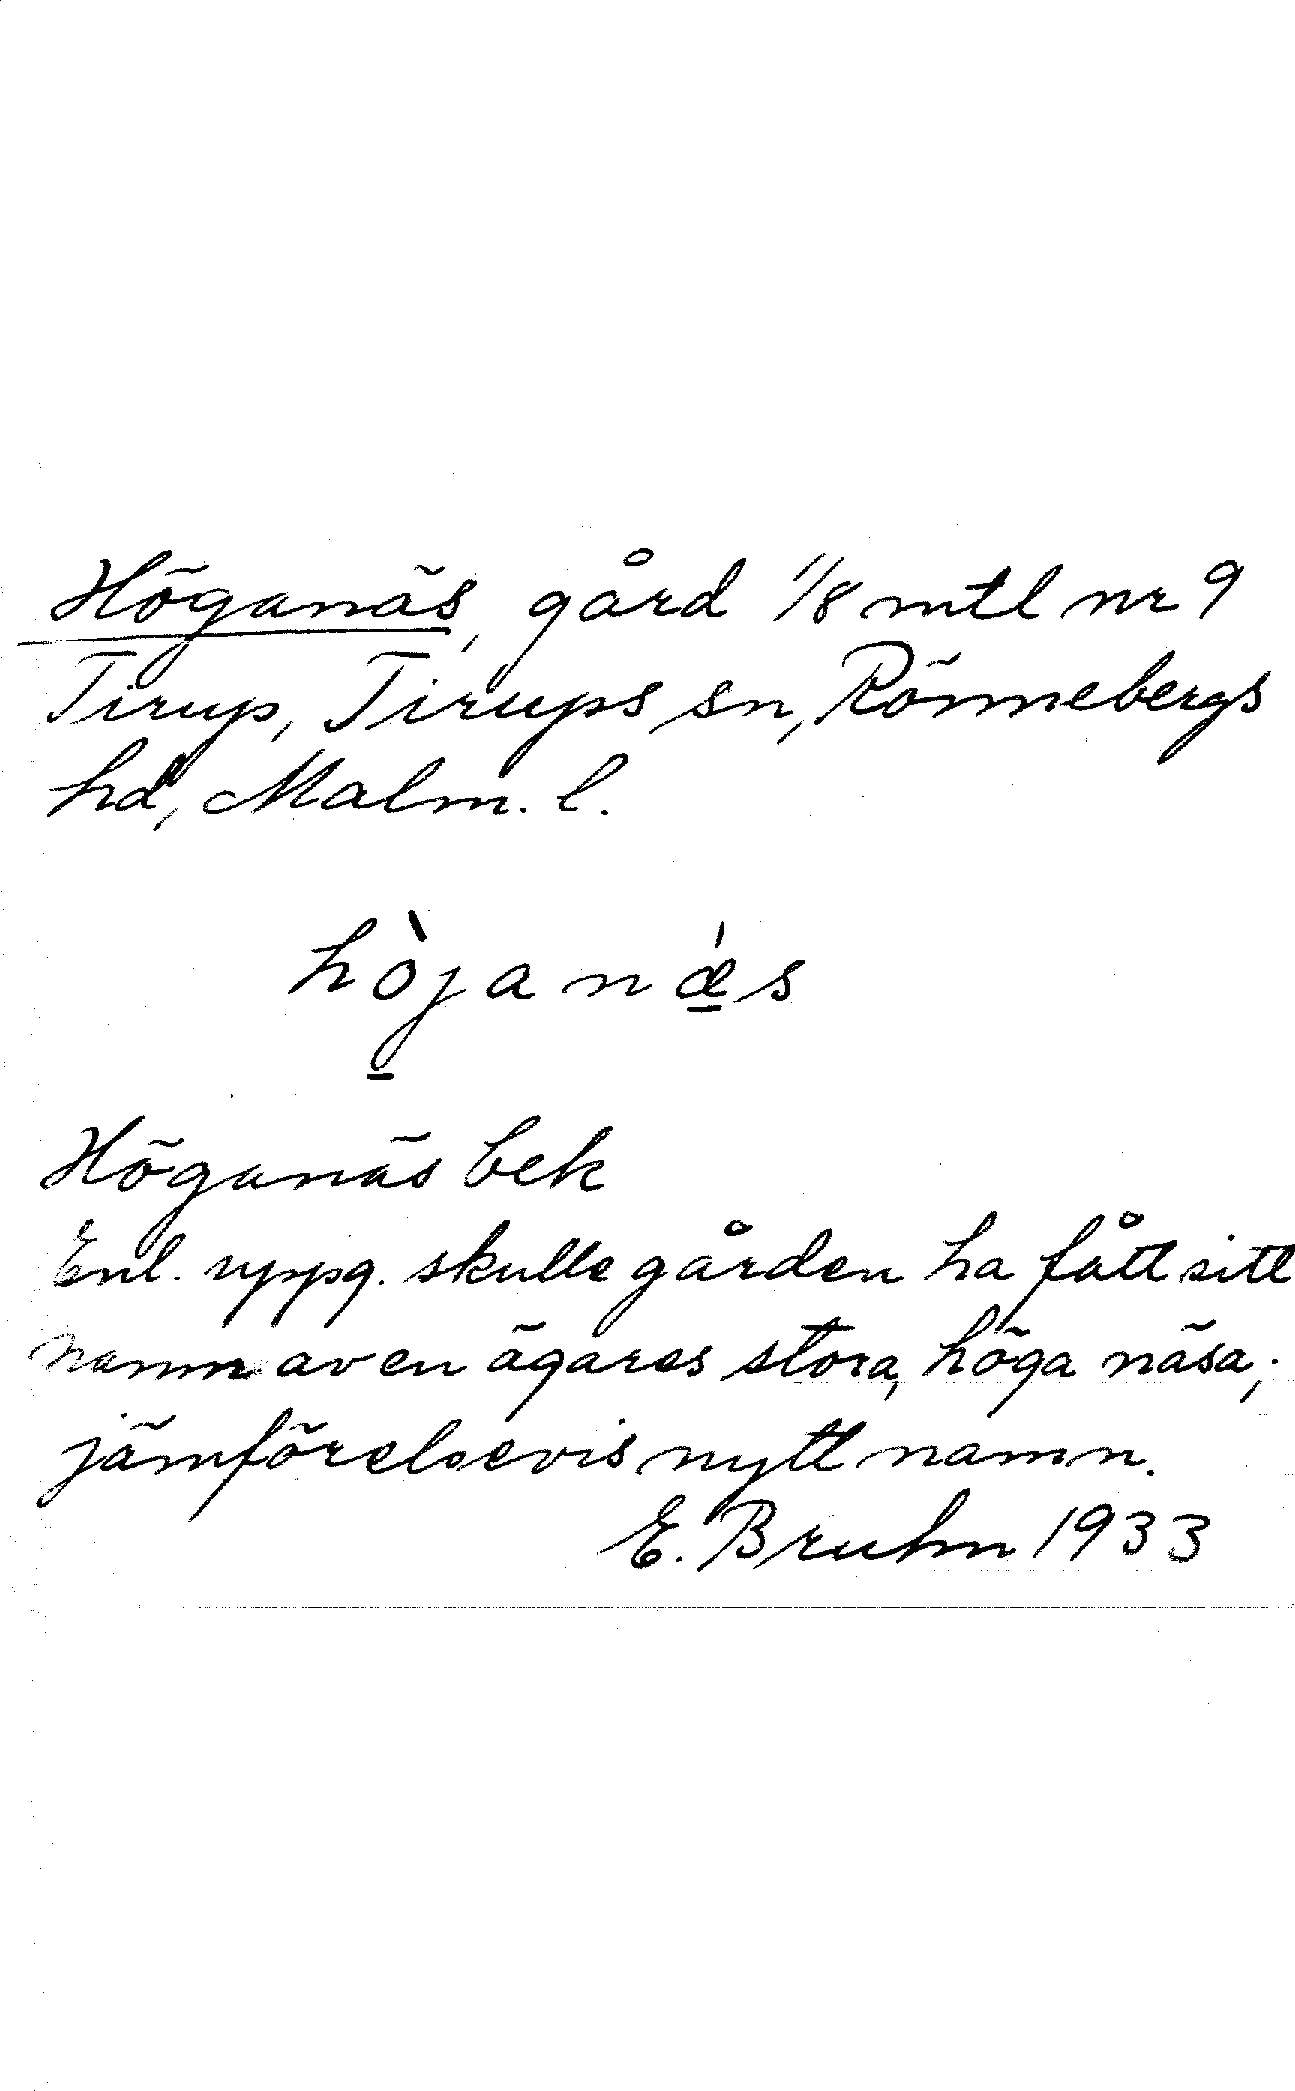 Höganäs, gård 1/8 mtl nr 9
Tirup, Tirups sn, Rönnebergs
hd, Malm. l.
hòjanǽs
Höganäs bek
Enl. uppg. skulle gården ha fått sitt
namn av en ägares stora, höga näsa;
jämförelsevis nytt namn.
E. Bruhn 1933